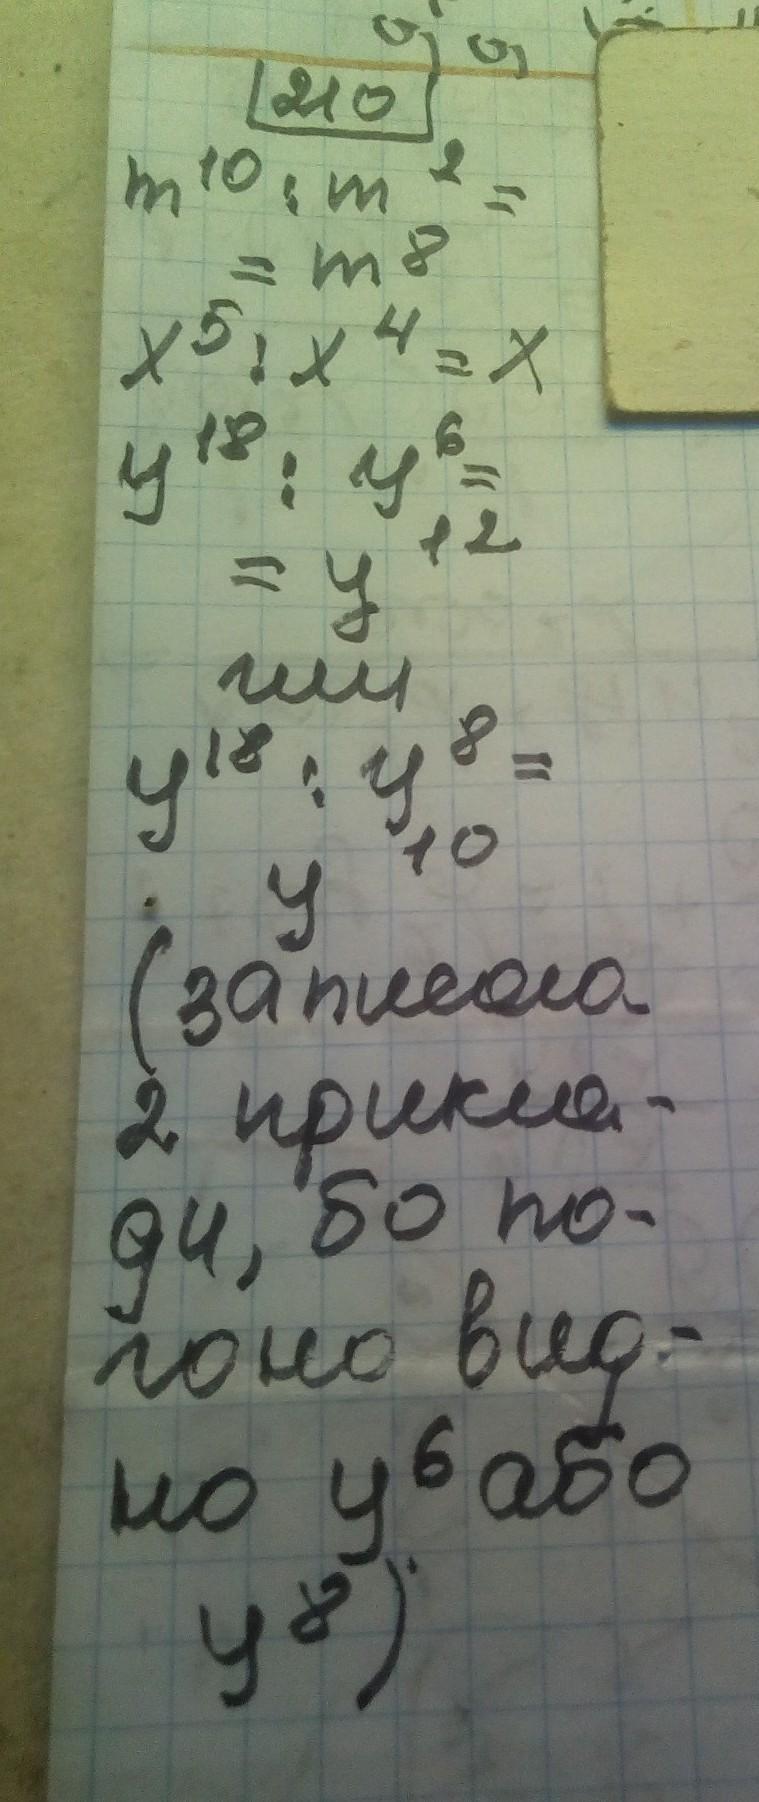 210
m¹⁰ : m² =
= m⁸
x⁵ : x⁴ = x
y¹⁸ : y⁶ =
= y¹²
или
y¹⁸ : y⁸ =
y¹⁰
(записала
2 прикла-
ди, бо по-
гоно вид-
но y⁶ або
y⁸)